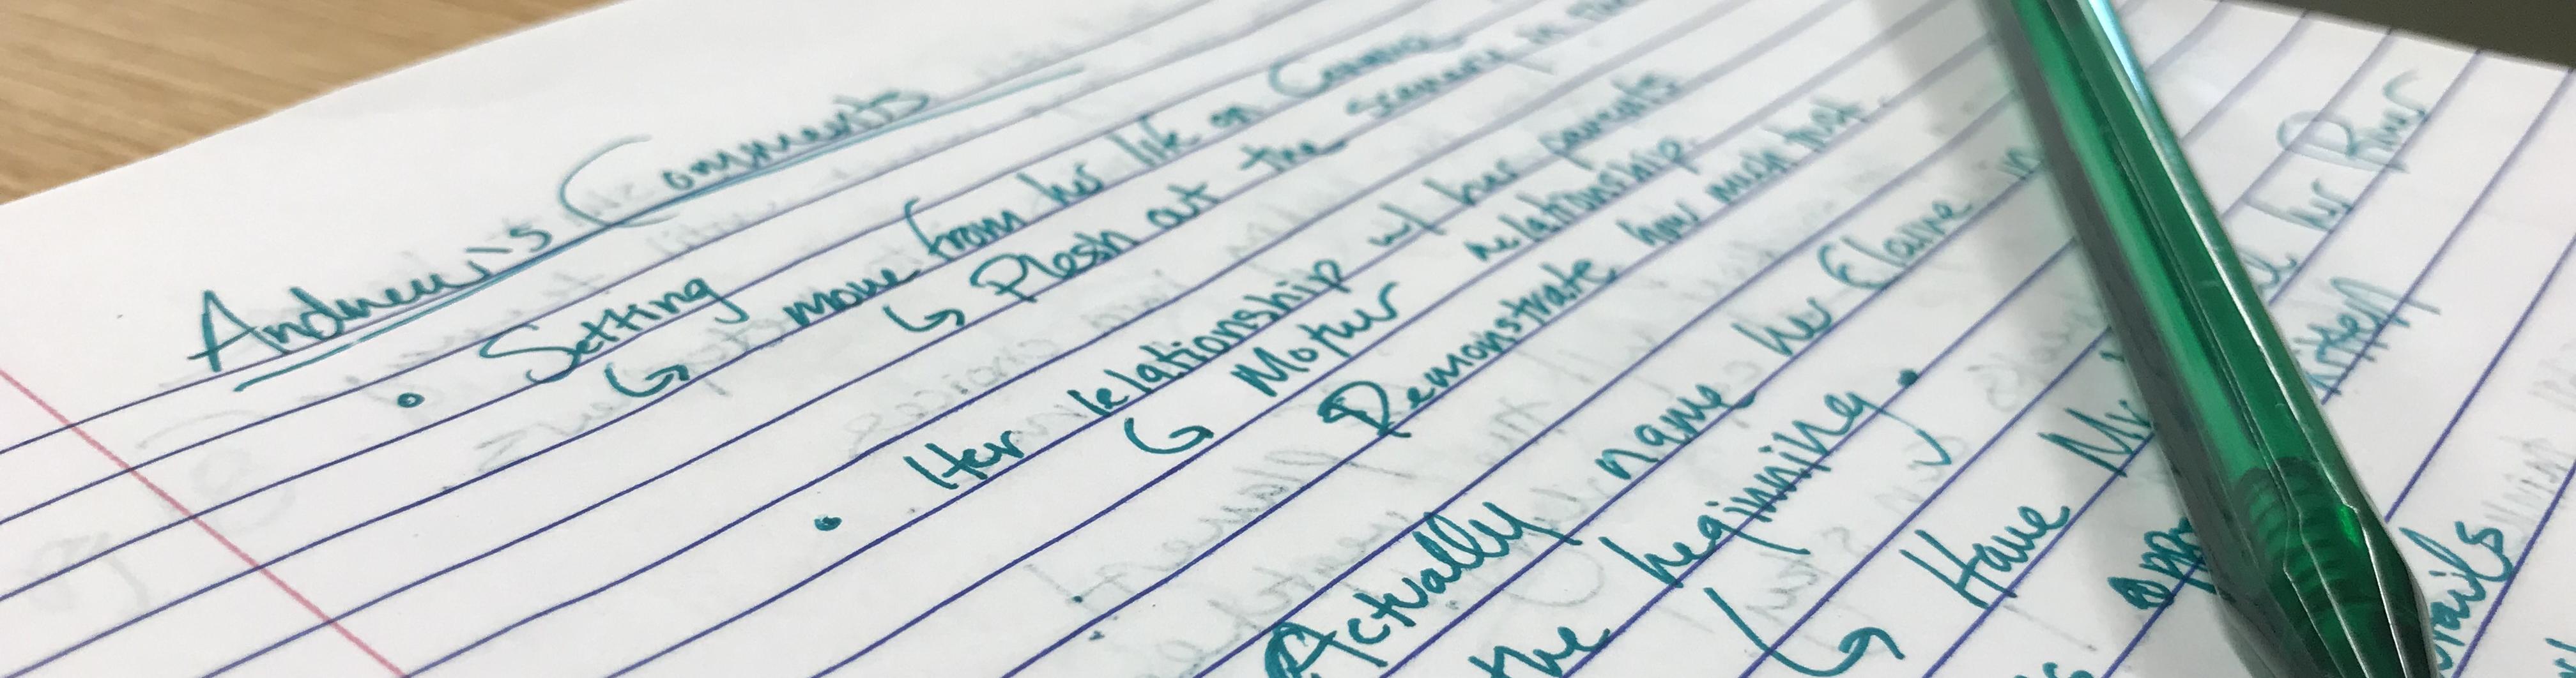 Andrew's Comments
• Setting
↳ move from her life on
↳ Flesh out the scenery in
• Her relationship w/ her parents
↳ Mother relationship.
Demonstrate how much that
Actually name her Elaine in
the beginning.
↳ Have
her River
itself